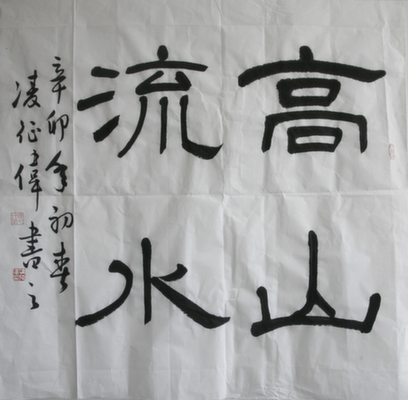 高山
流水
辛卯年初春
凌征伟书之